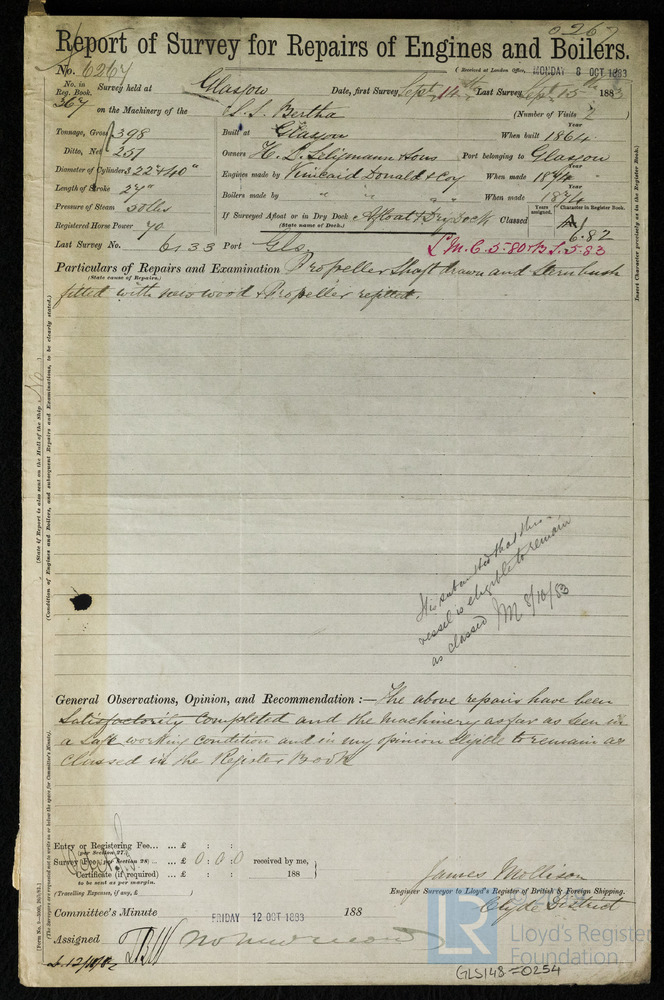 Report of Survey for Repairs of Engines and Boilers.
No. 6267
(Received at London Office, MONDAY 8 OCT 1883
No. in Reg. Book. 367 Survey held at Glasgow Date, first Survey Sept 14th Last Survey Sept 15th 1883
on the Machinery of the S.S. Bertha (Number of Visits 2)
Tonnage, Gross 398 Built at Glasgow When built Year 1864
Ditto, Net 257 Owners H. L. Seligmann & Sons Port belonging to Glasgow
Diameter of Cylinders 22" & 40" Engines made by Kincaid Donald & Coy When made Year 1874
Length of Stroke 27" Boilers made by " " " When made Year 1874
Pressure of Steam 50 lbs
Registered Horse Power 70 If Surveyed Afloat or in Dry Dock Afloat & Dry Dock Classed
(State name of Dock.)
Years assigned. Character in Register Book.
A1
6.82
Last Survey No. 6133 Port Gls.
L.M.C. 5-80 + B.S. 5-83
Particulars of Repairs and Examination Propeller Shaft drawn and Sternbush
(State cause of Repairs.)
fitted with new wood & Propeller refitted.
(State if Report is also sent on the Hull of the Ship. No)
(Condition of Engines and Boilers, and subsequent Repairs and Examinations, to be clearly stated.)
Insert Character precisely as in the Register Book.
It is submitted that this
vessel is eligible to remain
as classed JM 8/10/83
General Observations, Opinion, and Recommendation :— The above repairs have been
Satisfactorily Completed and the machinery as far as seen in
a Safe working condition and in my opinion eligible to remain as
Classed in the Register Book
Entry or Registering Fee... ... £ : :
(per Section 27.)
Survey Fee (per Section 28) ... ... £ 0 : 0 : 0 received by me,
Certificate (if required) ... £ : : 188
to be sent as per margin.
(Travelling Expenses, if any, £ )
James Mollison
Engineer Surveyor to Lloyd's Register of British & Foreign Shipping.
Clyde District
Committee's Minute FRIDAY 12 OCT 1883 188
Assigned
LR
Lloyd's Register
Foundation
GLS148-0254